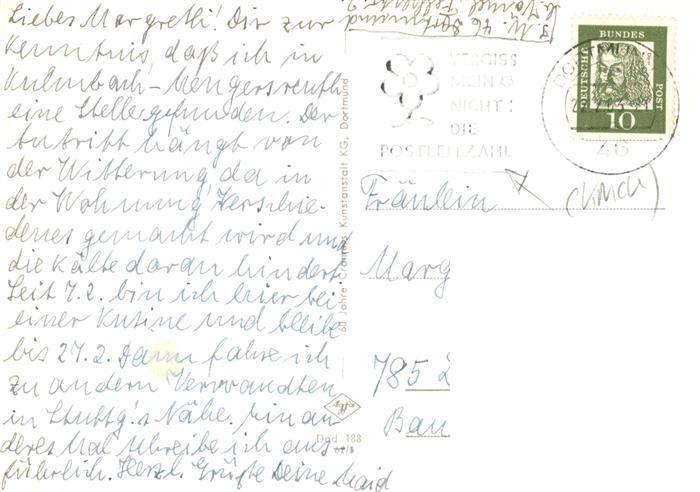 Liebes Margretli! Dir zur
Kenntnis, daß ich in
Kulmbach-Mengersreuth
eine Stelle gefunden. Der
Antritt hängt von
der Witterung, da in
der Wohnung Verschie-
denes gemacht wird und
die Kälte daran hindert.
Seit 7.2. bin ich hier bei
einer Kusine und bleibe
bis 27.2. Dann fahre ich
zu andern Verwandten
in Stuttg.'s Nähe. Ein an-
deres Mal schreibe ich aus-
führlich. Herzl. Grüße Deine Maid
60 Jahre Cramers Kunstanstalt KG, Dortmund
Agfa
Dod 188
46 Dortmund
VERGISS
MEIN
NICHT:
DIE
POSTLEITZAHL
DORTMUND
46
DEUTSCHE BUNDESPOST
10
(KMCK)
Fräulein
Marg
785 L
Bau